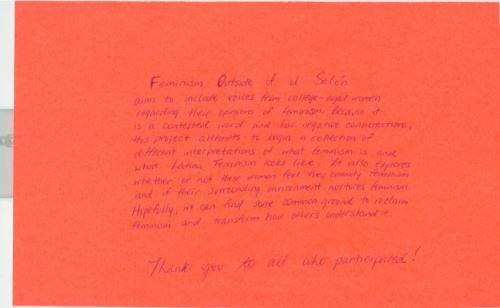 Feminism Outside of el Salón
aims to include voices from college-aged women
regarding their opinions of feminism. Because it
is a contested word and has negative connotations,
this project attempts to begin a collection of
different interpretations of what feminism is and
what Latina Feminism looks like. It also explores
whether or not these women feel they embody feminism
and if their surrounding environment nurtures feminism.
Hopefully, we can find some common ground to reclaim
feminism and transform how others understand it.
Thank you to all who participated!